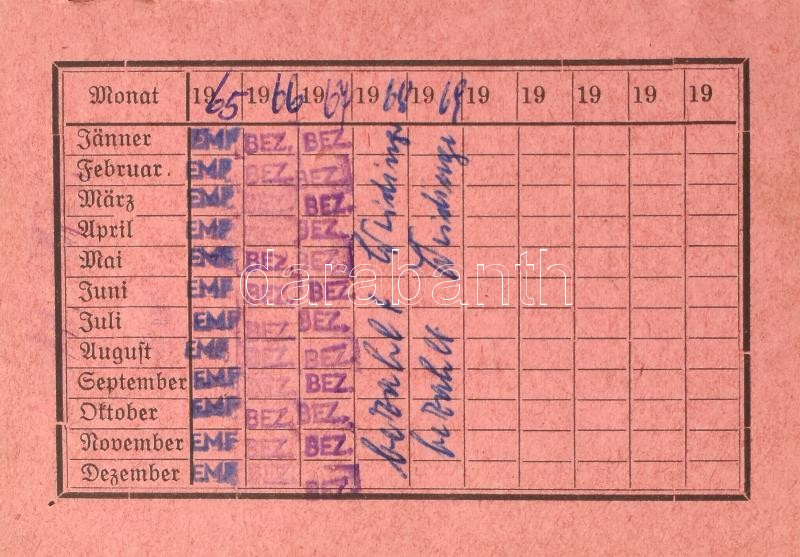 Monat 1965 1966 1967 1968 1969 19 19 19 19 19
Jänner EMP BEZ. BEZ.
Februar. EMP BEZ. BEZ.
März EMP BEZ.
April EMP BEZ.
Mai EMP BEZ. BEZ.
Juni EMP BEZ. BEZ.
Juli EMP BEZ. BEZ.
August EMP BEZ. BEZ.
September EMP BEZ. BEZ.
Oktober EMP BEZ. BEZ.
November EMP BEZ. BEZ.
Dezember EMP BEZ. BEZ.
bezahlt
bezahlt
darabanth